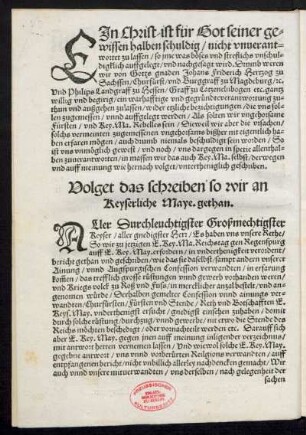 EIn Christ ist für Got seiner ge-
wissen halben schuldig / nicht vnverant-
wortet zu lassen / so jme was böses vnd streflichs vnschul-
digklich auffgelegt / vnd nachgesagt wird. Dieweil
wir von Gottes gnaden Johans Friderich Hertzog zu
Sachssen / Churfürst / vnd Burggraff zu Magdeburg / ec.
Vnd Philips Landgraff zu Hessen / Graff zu Catzenelnbogen ec. gantz
willig vnd begirig / ein warhafftige vnd gegründete verantwortung zu
thun vnd außgehen zulassen / wider etzliche bezichtigungen / die vns sollen
zugemessen / vnnd auffgelegt werden / Als solten wir vngehorsame
Fürsten / vnd Key. Ma. Rebellen sein / Dieweil wir aber die vrsachen /
solchs vermeinten zugemessenen vngehorsams bißher mit eigentlich ha-
ben erfaren mögen / auch damit niemals beschuldiget sein worden / So
ist vns vnmöglich gewest / vnd noch / vns dargegen in specie allenthal-
ben zuuerantworten / in massen wir das auch Key. Ma. selbst / derwegen
vnd auff meinung wie hernach volget / vnterthenigklich geschriben.
Volget das schreiben so wir an
Keyserliche Maye. gethan.
ALler Durchleuchtigster Großmechtigster
Keyser / aller gnedigster Herr / Es haben vns vnsere Rethe /
So wir zu jetzigen E. Key. Ma. Reichstag gen Regenspurg
auff E. Key. May. erfordern / in vnderthenigkeit verordent /
bericht gethan vnd geschriben / wie das sie sedselbst sampt andern vnserer
Ainung / vnnd Augspurgischen Confession verwandten / in erfarung
kommen / das trefflich grosse rüstungen vnnd gewerb vorhanden weren /
vnd Kriegs volck zu Roß vnd fuß / in mercklicher anzal bestelt / vnd an-
genommen würde / Derhalben gemelter Confession vnnd ainungs ver-
wandten / Churfürsten / Fürsten vnd Stende / Rethe vnd Botschafften E.
Keys. May. vnderthenigst ersucht / gnedigst einsehen zuhaben / damit
durch solche rüstung / durchzug / vnnd gewerbe / mit etwo die Stende des
Reichs möchten beschedigt / oder vornachteilt werden etc. Darauff sich
aber E. Key. Ma. gegen jnen auff meinung inligender verzeichnus /
mit antwort hetten vernemen lassen / Vnd wiewol solche E. Key. May.
gegebne antwort / vns vnnd vnserer Religions verwandten / auff
entpfangenen bericht / nicht vnbillich allerley nachdencken gemacht / Wir
auch vnnd vnsere mituerwandten / vns derselben / nach gelegenheit der
sachen